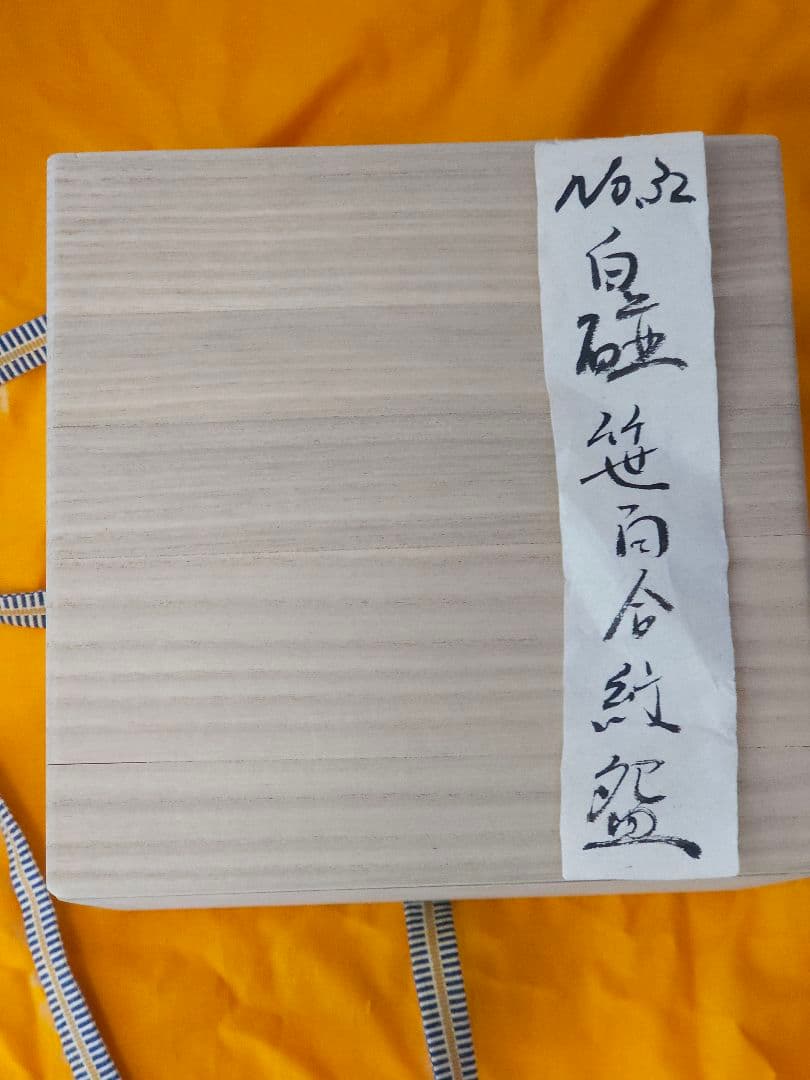 No.32
白磁 笹百合紋盌